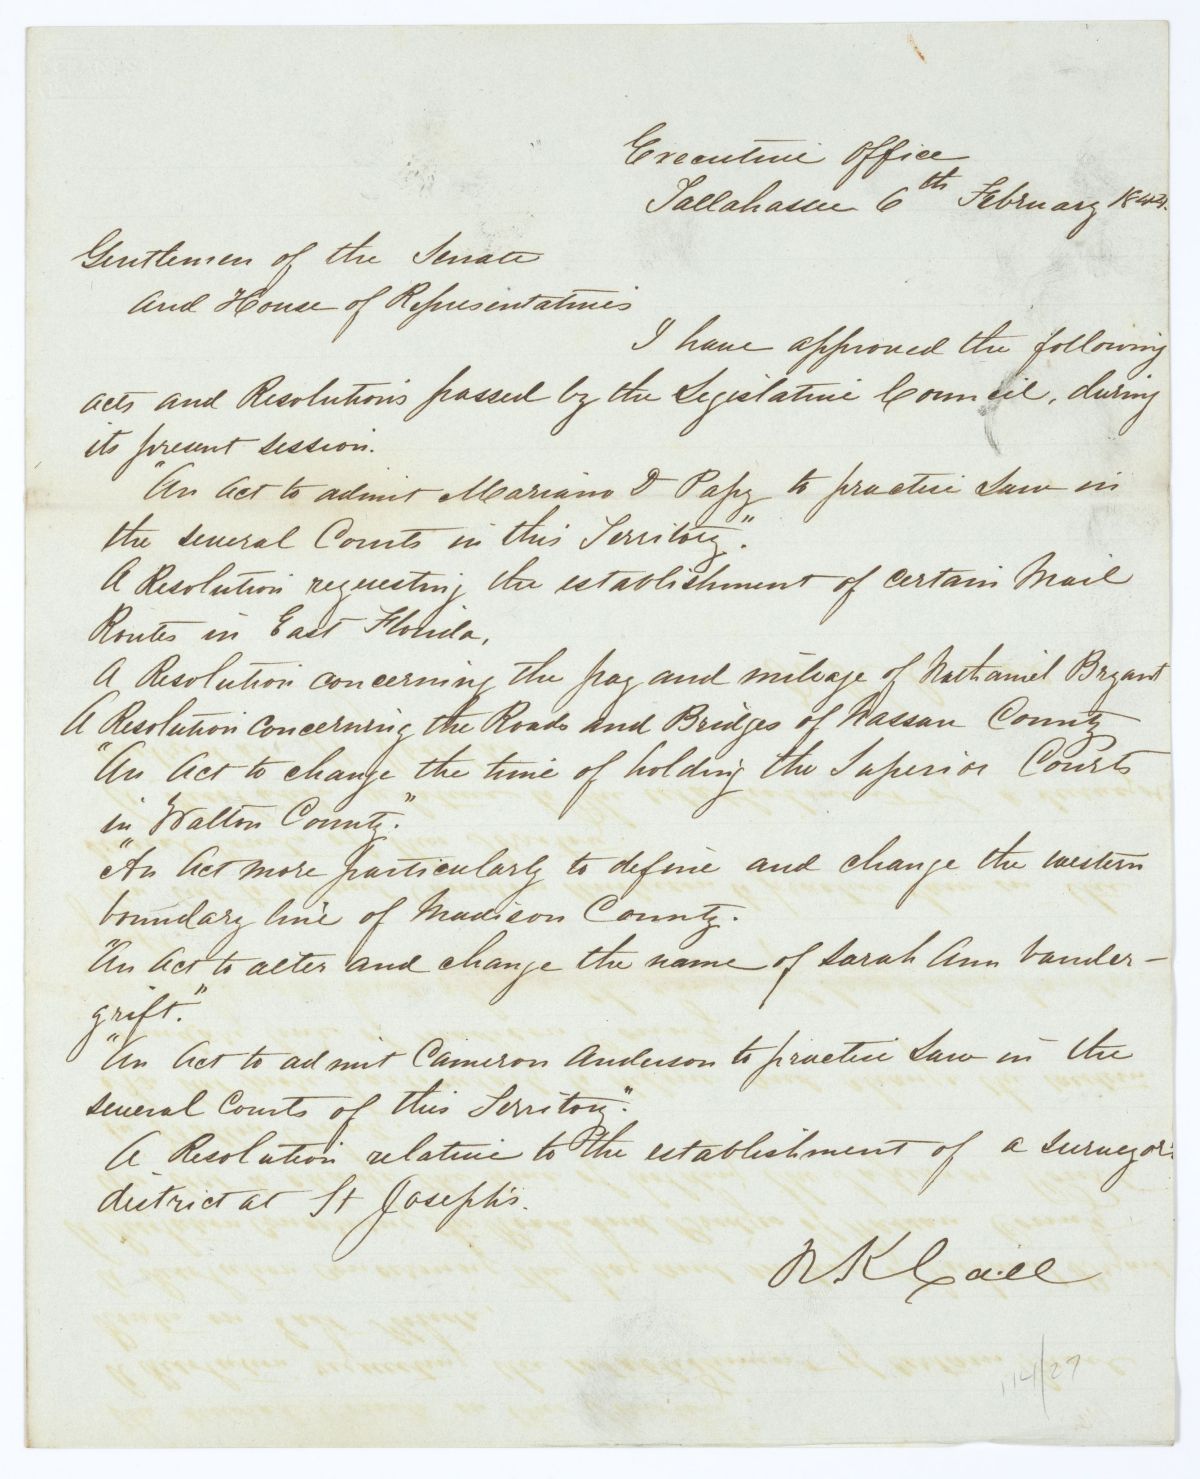 Executive Office
Tallahassee 6th February 1843.
Gentlemen of the Senate
and House of Representatives
I have approved the following
acts and Resolutions passed by the Legislative Council, during
its present session.
"An Act to admit Mariano D Papy to practice Law in
the several Courts in this Territory".
A Resolution requesting the establishment of certain Mail
Routes in East Florida.
A Resolution concerning the pay and mileage of Nathaniel Bryant
A Resolution concerning the Roads and Bridges of Nassau County
"An Act to change the time of holding the Superior Courts
in Walton County".
"An Act more particularly to define and change the western
boundary line of Madison County.
"An Act to alter and change the name of Sarah Ann Vander-
grift."
"An Act to admit Cameron Anderson to practice Law in the
several Courts of this Territory".
A Resolution relative to the establishment of a surveyor's
district at St Joseph's.
R K Call
114/27